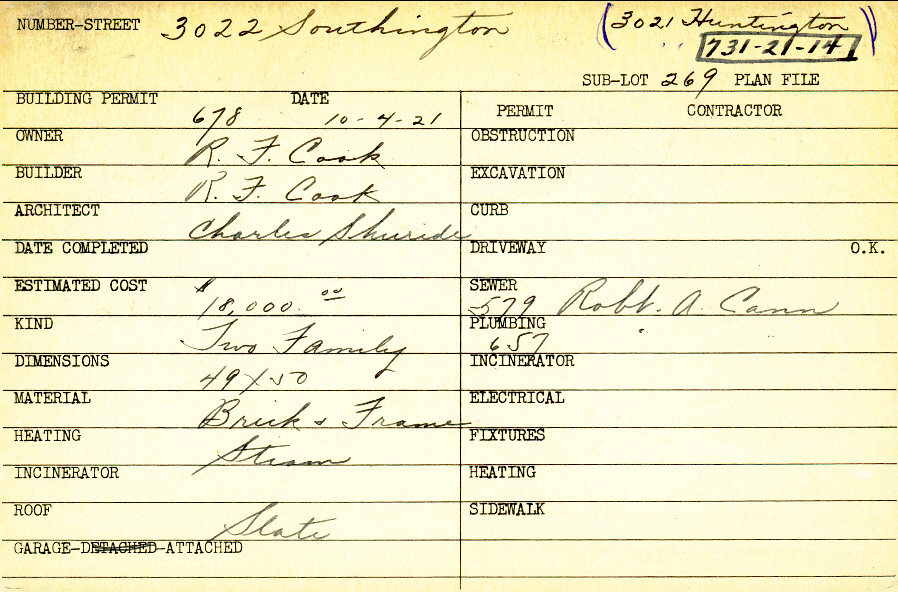 NUMBER-STREET 3022 Southington (3021 Huntington)
731-21-14
SUB-LOT 269 PLAN FILE
BUILDING PERMIT 678 DATE 10-4-21
OWNER R. F. Cook
BUILDER R. F. Cook
ARCHITECT Charles
DATE COMPLETED
ESTIMATED COST $18,000.00
KIND Two Family
DIMENSIONS 49 X 50
MATERIAL Brick & Frame
HEATING Steam
INCINERATOR
ROOF Slate
GARAGE-DETACHED-ATTACHED
PERMIT CONTRACTOR
OBSTRUCTION
EXCAVATION
CURB
DRIVEWAY O.K.
SEWER 579 Robt. A. Cann
PLUMBING 657 " "
INCINERATOR
ELECTRICAL
FIXTURES
HEATING
SIDEWALK